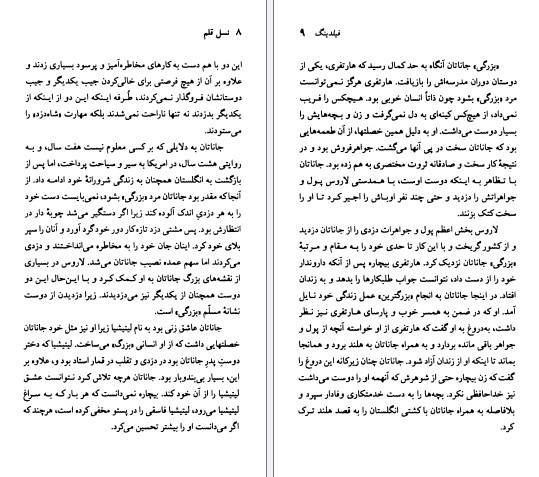 ۸ نسل قلم
این دو با هم دست به کارهای مخاطره‌آمیز و پرسود بسیاری زدند و
علاوه بر آن از هیچ فرصتی برای خالی‌کردن جیب یکدیگر و جیب
دوستانشان فروگذار نمی‌کردند، طُرفه اینکه این دو از اینکه از
یکدیگر بدزدند نه تنها ناراحت نمی‌شدند بلکه مهارت «شاه‌دزد» را
می‌ستودند.
جاناتان به دلایلی که بر کسی معلوم نیست هفت سال، و به
روایتی هشت سال، در امریکا به سیر و سیاحت پرداخت، اما پس از
بازگشت به انگلستان همچنان به زندگی شرورانهٔ خود ادامه داد. از
آنجا که مقدر بود جاناتان مرد «بزرگی» بشود، نمی‌بایست دست خود
را به هر دزدیِ اندک آلوده کند زیرا اگر دستگیر می‌شد چوبهٔ دار در
انتظارش بود. پس مشتی دزد تازه‌کار دور خود گرد آورد و آنان را سپر
بلای خود کرد. اینان جان خود را به مخاطره می‌انداختند و دزدی
می‌کردند اما سهم عمده نصیب جاناتان می‌شد. لاروس در بسیاری
از نقشه‌های بزرگ جاناتان به او کمک کرد و با این‌حال این دو
دوست همچنان از یکدیگر نیز می‌دزدیدند. زیرا دزدیدن از دوست
نشانهٔ مسلّم «بزرگی» است.
جاناتان عاشق زنی به نام لیتیشیا زیرا او نیز مثل خود جاناتان
خصلتهایی داشت که از او انسانی «بزرگ» می‌ساخت. لیتیشیا که دختر
دوستِ پدر جاناتان بود در دزدی و تقلب در قمار استاد بود و علاوه بر
این، بسیار بی‌بندوبار بود. جاناتان هرچه تلاش کرد نتوانست عشق
لیتیشیا را از آن خود کند. بیچاره نمی‌دانست که هر بار که به سراغ
لیتیشیا می‌رود، لیتیشیا فاسقی را در پستو مخفی کرده است، هرچند که
اگر می‌دانست او را بیشتر تحسین می‌کرد.
فیلدینگ ۹
«بزرگی» جاناتان آنگاه به حد کمال رسید که هارتفری، یکی از
دوستان دوران مدرسه‌اش را بازیافت. هارتفری هرگز نمی‌توانست
مرد «بزرگی» بشود چون ذاتاً انسان خوبی بود. هیچکس را فریب
نمی‌داد، از هیچ‌کس کینه‌ای به دل نمی‌گرفت و زن و بچه‌هایش را
بسیار دوست می‌داشت. او به دلیل همین خصلتها، از آن طعمه‌هایی
بود که جاناتان سخت در پی آنها می‌گشت. جواهرفروش بود و در
نتیجهٔ کار سخت و صادقانه ثروت مختصری به هم زده بود. جاناتان
با تظاهر به اینکه دوست اوست، با همدستی لاروس پول و
جواهراتش را دزدید و حتی چند نفر اوباش را اجیر کرد تا او را
سخت کتک بزنند.
لاروس بخش اعظم پول و جواهرات دزدی را از جاناتان دزدید
و از کشور گریخت و با این کار تا حدی خود را به مقام و مرتبهٔ
«بزرگی» جاناتان نزدیک کرد. هارتفری بیچاره پس از آنکه داروندار
خود را از دست داد، نتوانست جواب طلبکارها را بدهد و به زندان
افتاد. در اینجا جاناتان به انجام «بزرگترین» عمل زندگی خود نایل
آمد. او که در ضمن به همسر خوب و پارسای هارتفری نیز نظر
داشت، به‌دروغ به او گفت که هارتفری از او خواسته آنچه از پول و
جواهر باقی مانده بردارد و به همراه جاناتان به هلند برود و همانجا
بماند تا اینکه او از زندان آزاد شود. جاناتان چنان زیرکانه این دروغ را
گفت که زن بیچاره حتی از شوهرش که آنهمه او را دوست می‌داشت
نیز خداحافظی نکرد. بچه‌ها را به دست خدمتکاری وفادار سپرد و
بلافاصله به همراه جاناتان با کشتی انگلستان را به قصد هلند ترک
کرد.